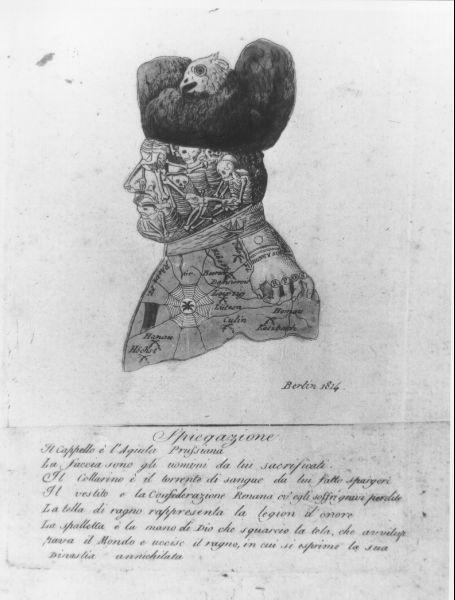 Hanau
Höchst
Leipzig
Lützen
Culm
Katzbach
Berlin 1814.
Spiegazione
Il Cappello è l'Aquila Prussiana
La faccia sono gli uomini da lui sacrificati
Il Collarino è il torrente di sangue da lui fatto spargere
Il vestito e la Confederazione Renana ov'egli soffri gravi perdite
La tella di ragno rappresenta la legion d'onore
La spalletta è la mano di Dio che squarcio la tela, che avvilup
pava il Mondo e uccise il ragno, in cui si esprime la sua
Dinastia annichilata